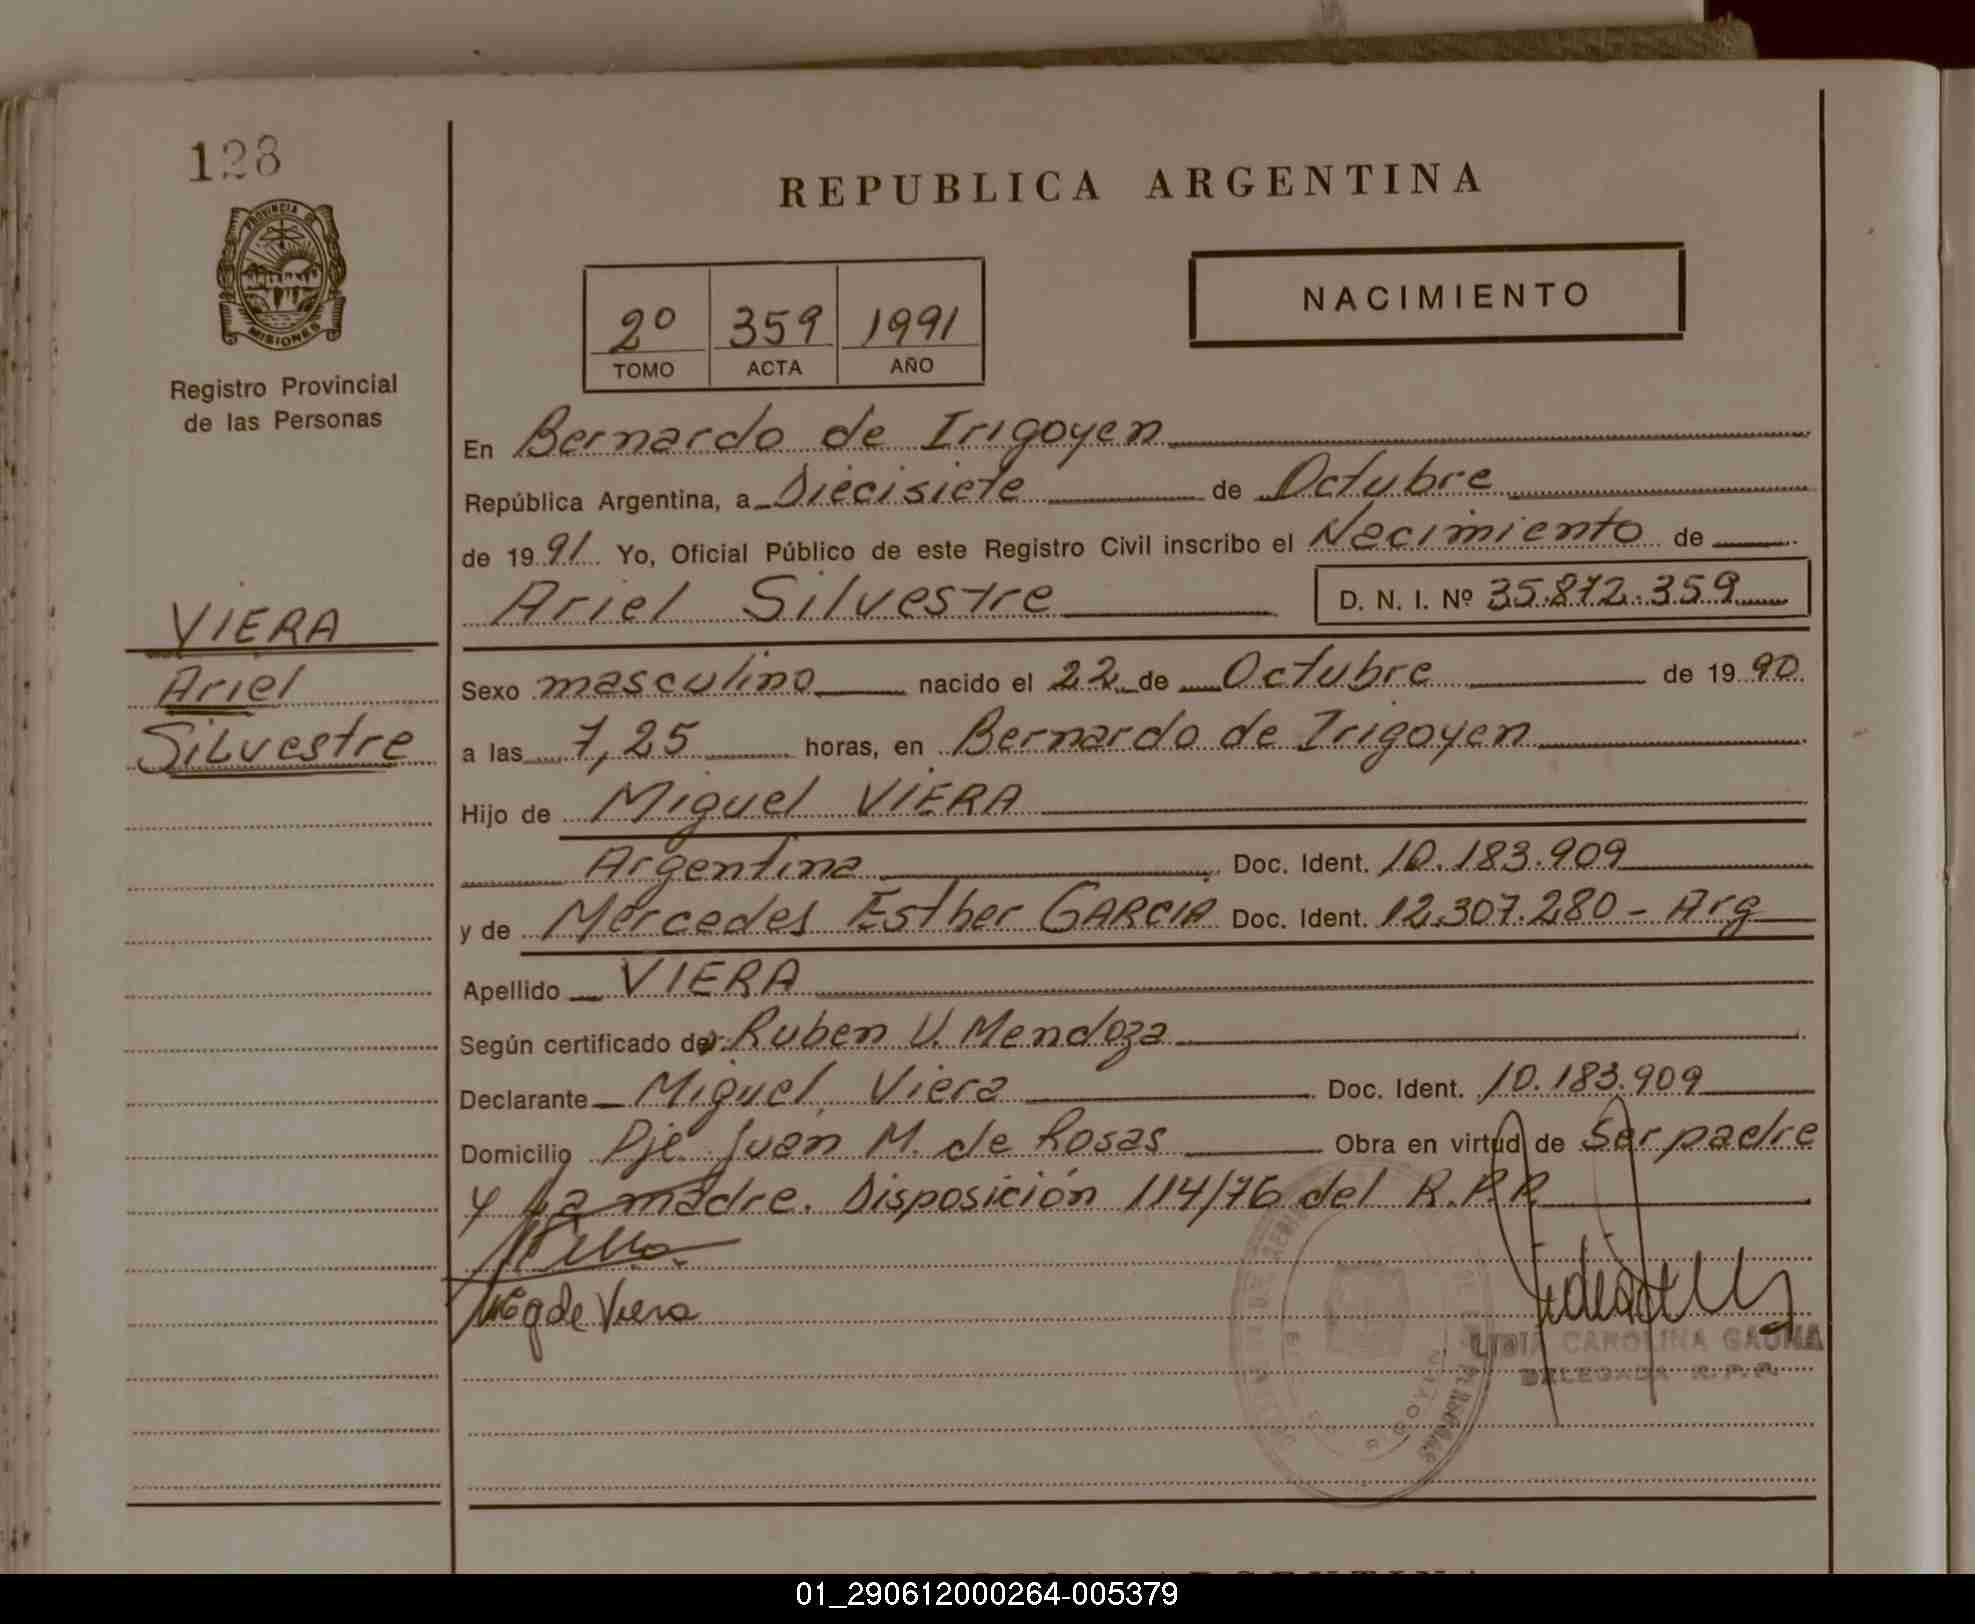 128
PROVINCIA DE
MISIONES
Registro Provincial
de las Personas
REPUBLICA ARGENTINA
NACIMIENTO
2º 359 1991
TOMO ACTA AÑO
En Bernardo de Irigoyen
República Argentina, a Diecisiete de Octubre
de 1991 Yo, Oficial Público de este Registro Civil inscribo el Nacimiento de
Ariel Silvestre D. N. I. Nº 35.872.359
VIERA
Ariel
Silvestre
Sexo masculino nacido el 22 de Octubre de 1990
a las 7,25 horas, en Bernardo de Irigoyen
Hijo de Miguel VIERA
Argentina Doc. Ident. 10.183.909
y de Mercedes Esther GARCIA Doc. Ident. 12.307.280 - Arg
Apellido VIERA
Según certificado de: Ruben V. Mendoza
Declarante Miguel Viera Doc. Ident. 10.183.909
Domicilio Pje. Juan M. de Rosas Obra en virtud de Ser padre
y La madre. Disposición 114/76 del R.P.P.
de Viera
LIDIA CAROLINA GAUNA
DELEGADA R.P.P.
01_290612000264-005379